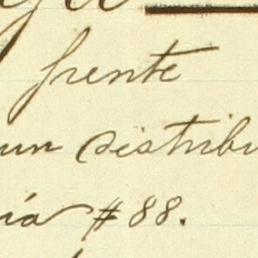 frente
un distribu
ía # 88.